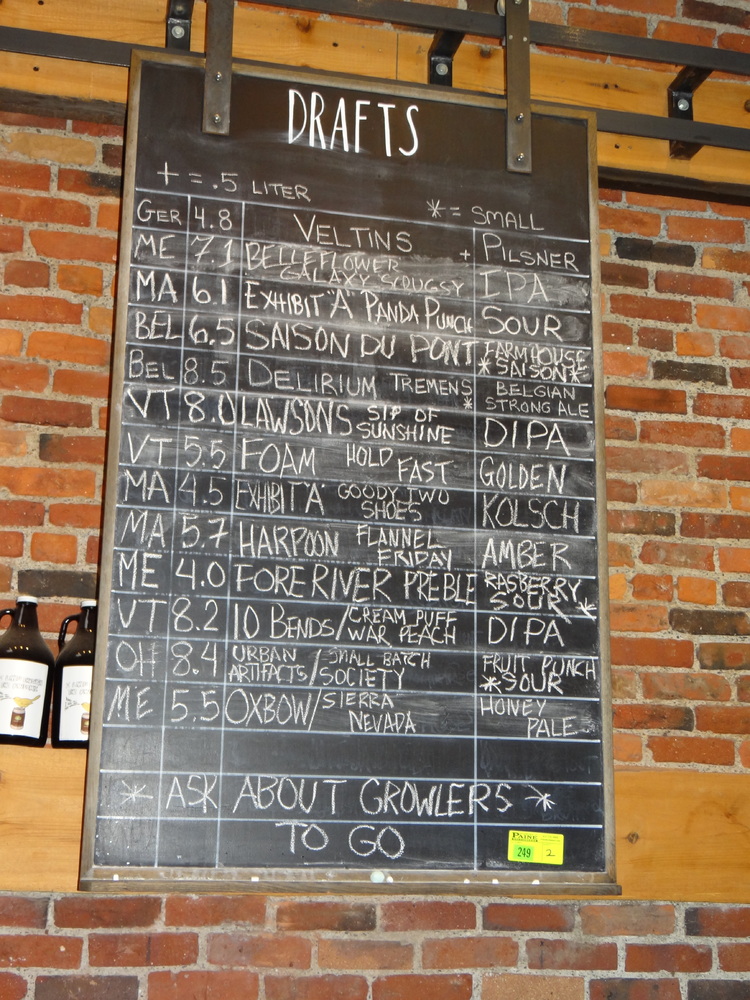 DRAFTS
+ = .5 LITER
* = SMALL
GER 4.8 VELTINS + PILSNER
ME 7.1 BELLEFLOWER GALAXY SOUGSY IPA
MA 6.1 EXHIBIT "A" PANDA PUNCH SOUR
BEL 6.5 SAISON DU PONT FARMHOUSE
* SAISON *
BEL 8.5 DELIRIUM TREMENS * BELGIAN
STRONG ALE
VT 8.0 LAWSONS SIP OF
SUNSHINE DIPA
VT 5.5 FOAM HOLD FAST GOLDEN
MA 4.5 EXHIBIT 'A' GOODY TWO
SHOES KOLSCH
MA 5.7 HARPOON FLANNEL
FRIDAY AMBER
ME 4.0 FORE RIVER PREBLE RASBERRY
SOUR *
VT 8.2 10 BENDS / CREAM PUFF
WAR PEACH DIPA
OH 8.4 URBAN
ARTIFACTS / SMALL BATCH
SOCIETY FRUIT PUNCH
* SOUR
ME 5.5 OXBOW / SIERRA
NEVADA HONEY
PALE
* ASK ABOUT GROWLERS *
TO GO
PAINE
249 2